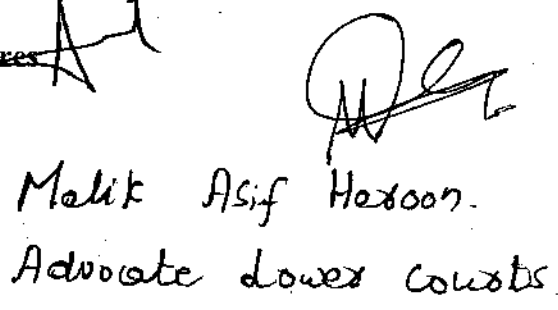 res
Malik Asif Haroon.
Advocate Lower Courts